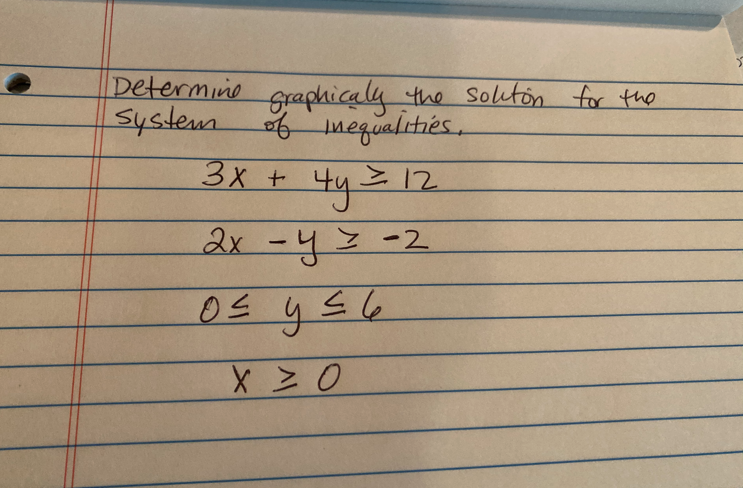 Determine graphicaly the soluton for the
system of inequalities.
3x + 4y ≥ 12
2x - y ≥ -2
0 ≤ y ≤ 6
x ≥ 0